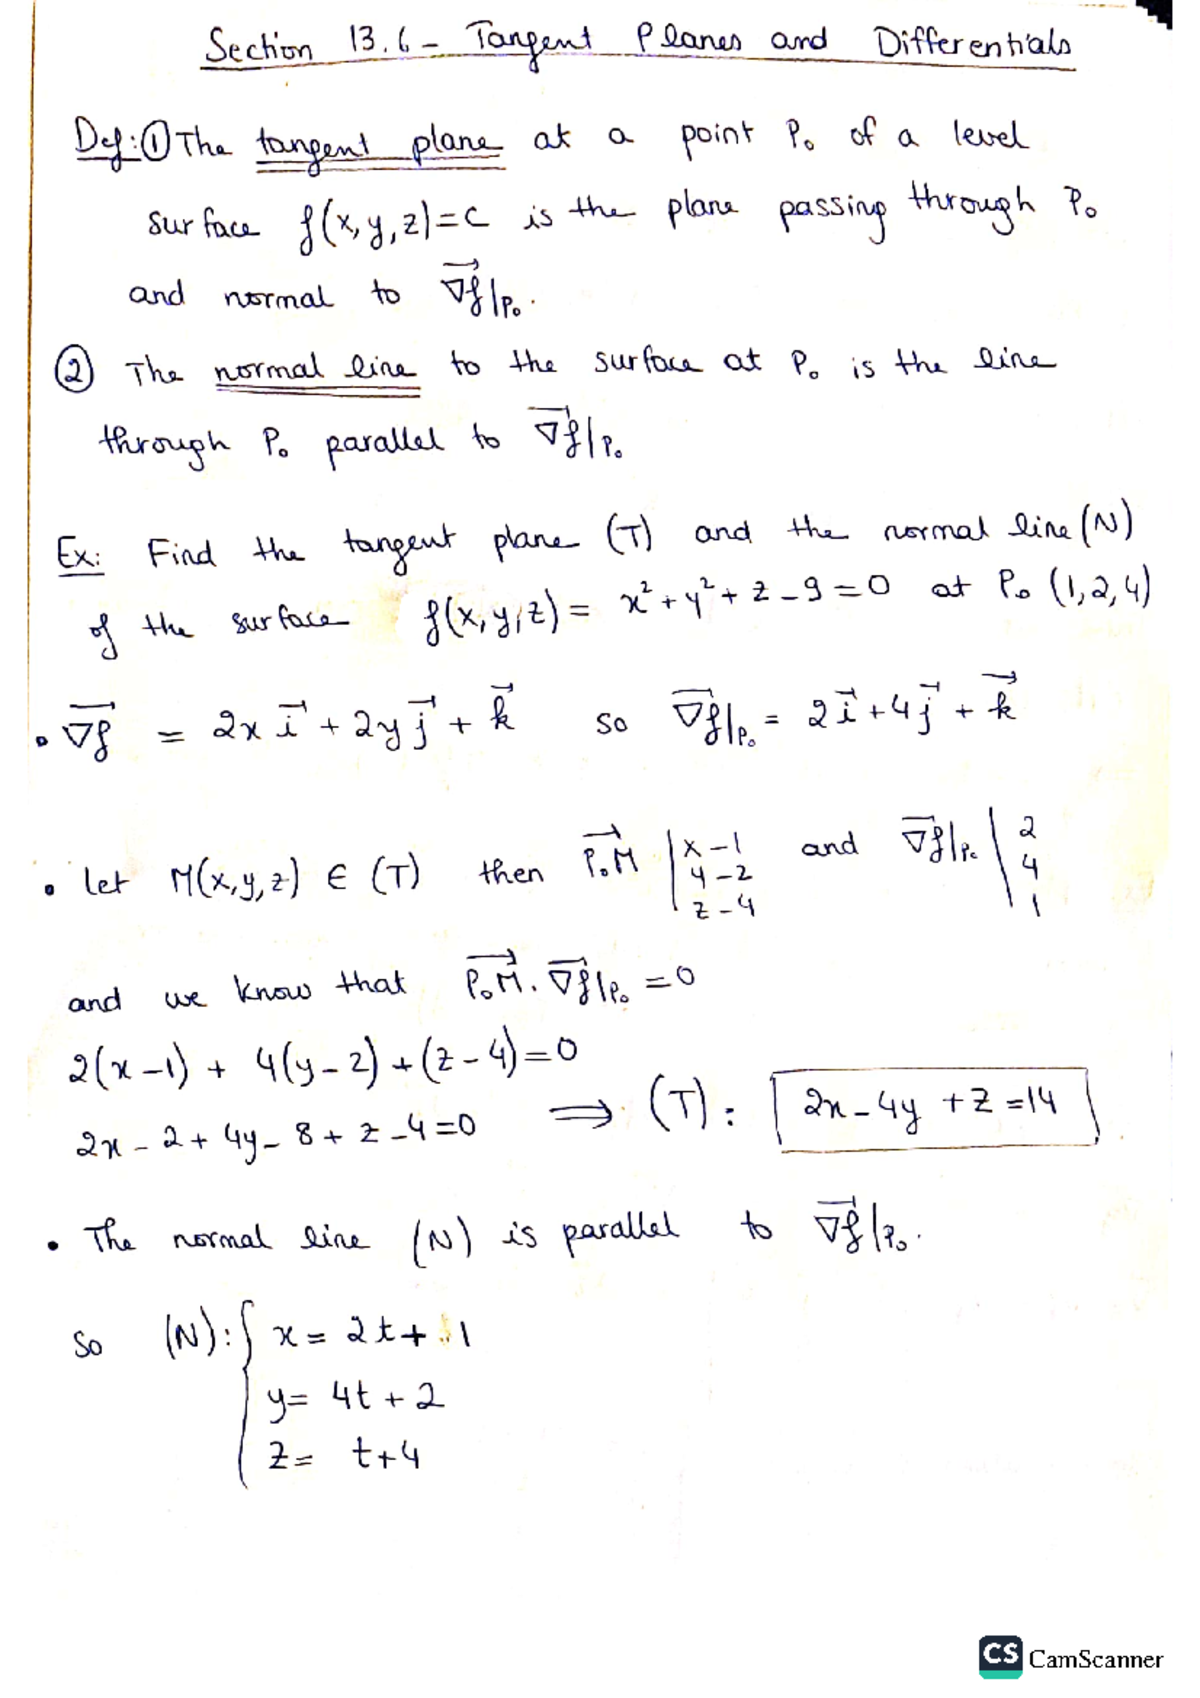 Section 13.6 - Tangent Planes and Differentials
Def: ① The tangent plane at a point P₀ of a level
surface f(x,y,z)=C is the plane passing through P₀
and normal to ∇⃗f|P₀.
② The normal line to the surface at P₀ is the line
through P₀ parallel to ∇⃗f|P₀
Ex: Find the tangent plane (T) and the normal line (N)
of the surface f(x,y,z) = x² + y² + z - 9 = 0 at P₀ (1,2,4)
• ∇⃗f = 2x i⃗ + 2y j⃗ + k⃗ so ∇⃗f|P₀ = 2 i⃗ + 4 j⃗ + k⃗
• let M(x,y,z) ∈ (T) then P₀M⃗ | x-1 and ∇⃗f|P₀ | 2
y-2 4
z-4 1
and we know that P₀M⃗ . ∇⃗f|P₀ = 0
2(x-1) + 4(y-2) + (z-4) = 0
2x - 2 + 4y - 8 + z - 4 = 0 ⟹ (T): 2x - 4y + z = 14
• The normal line (N) is parallel to ∇⃗f|P₀.
so (N): { x = 2t + 1
y = 4t + 2
z = t + 4
CS CamScanner